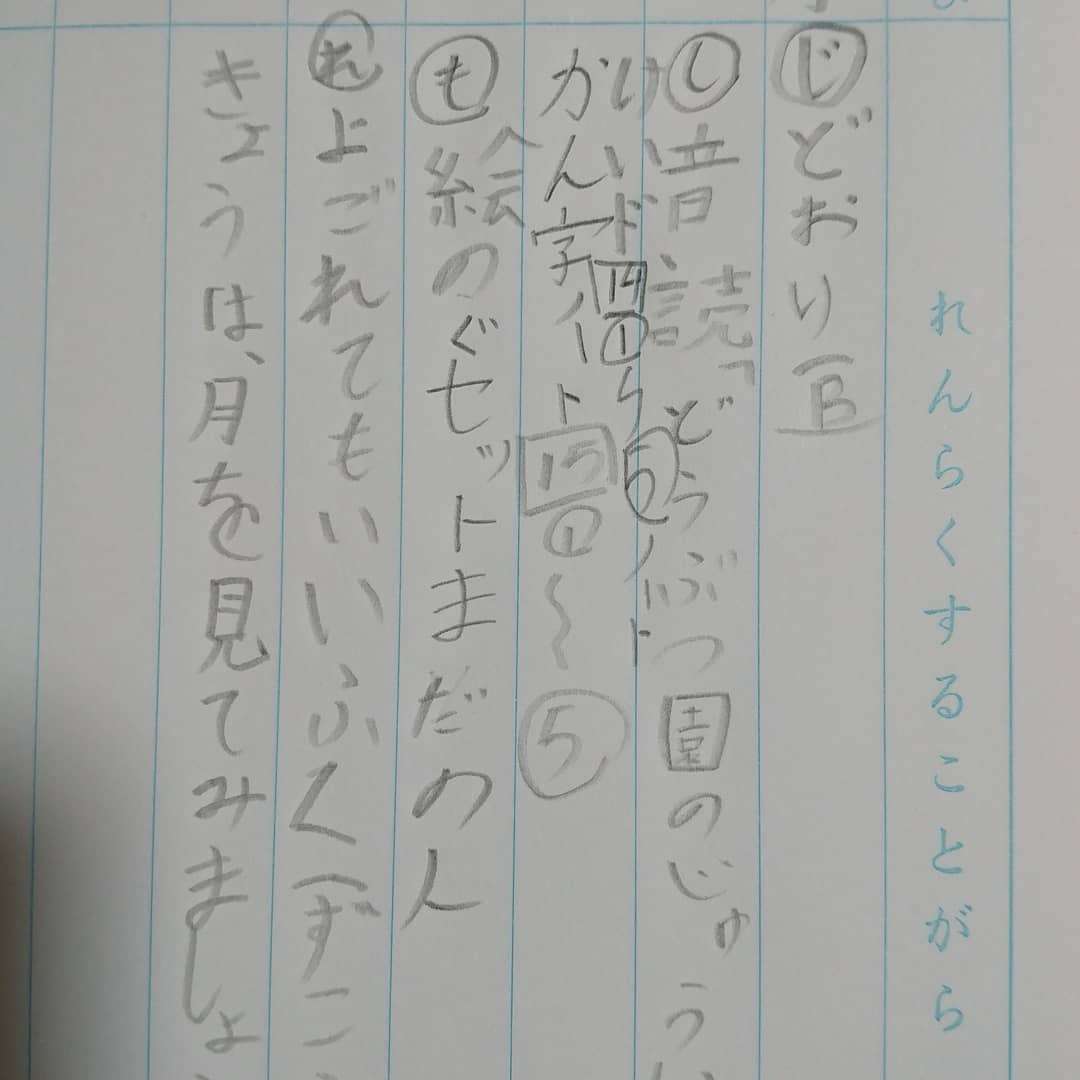 れんらくすることがら
じどおりB
し音読「どうぶつ園のじゅう
けいド14①ら⑤ノート
かん字ノート15①〜⑤
も絵のぐセットまだの人
れよごれてもいいふく(ずこ
きょうは、月を見てみましょ